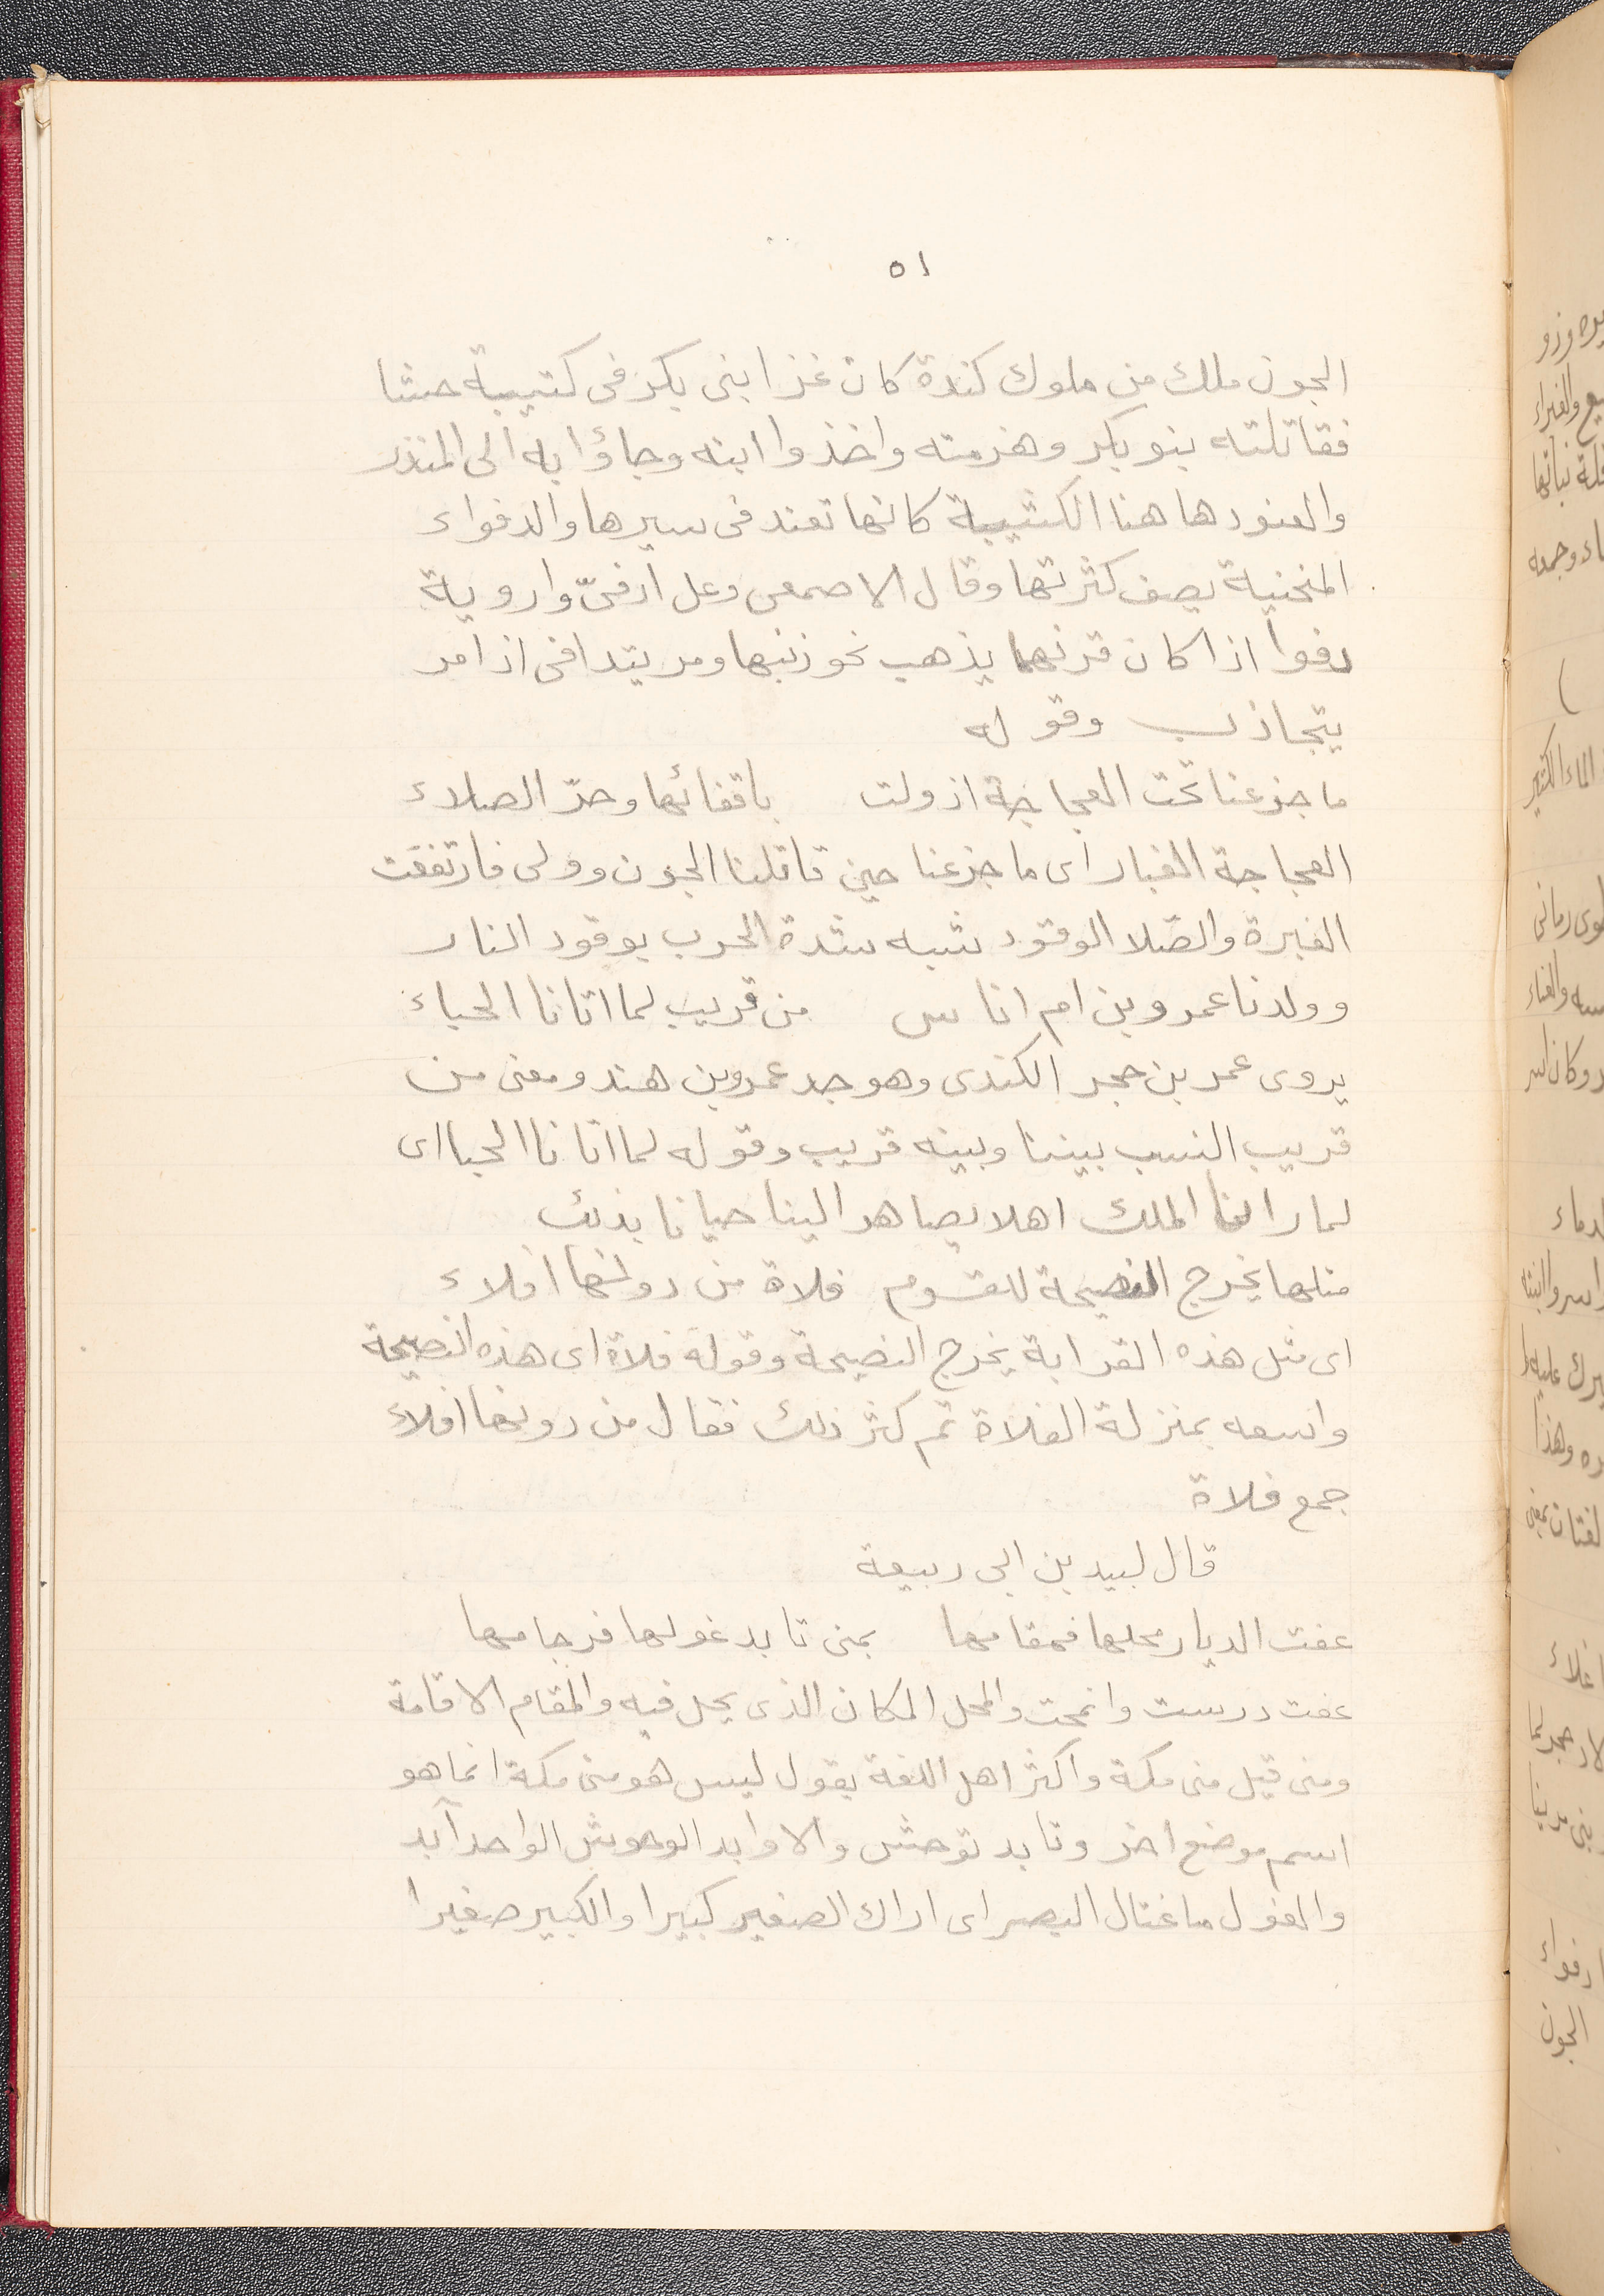 ٥١
الجون ملك من ملوك كندة كان غزا بنى بكر فى كتيبة حشنا
فقاتلته بنو بكر وهزمته واخذوا ابنه وجاؤا به الى المنذر
والعنود هاهنا الكتيبة كانها تعند فى سيرها والدفواء
المنخنية يصف كثرتها وقال الاصمعى وعل ادفىّ واروية
دفوا اذا كان قرنهما يذهب نحو ذنبها ومر يتدافى اذا مر
يتجاذب وقوله
ما جزعنا تحت العجاجة اذ ولت باقفائها وحدّ الصلاء
العجاجة الغبار اى ما جزعنا حين قاتلنا الجون وولى فارتفقت
الغبرة والصّلا الوقود شبه شدة الحرب بوقود النار
وولدنا عمرو بن ام اناس من قريب لما اتانا الحباء
يروى عمر بن حجر الكندى وهو جد عمرو بن هند ومعنى من
قريب النسب بيننا وبينه قريب وقوله لما اتانا الحبا اى
لما رانا الملك اهلا يصاهر الينا حبانا بذلك
مثلها يخرج النصيحة للقوم فلاة من دونها افلاء
اى مثل هذه القرابة يخرج النصيحة وقوله فلاة اى هذه النصيحة
واسعه بمنزلة الفلاة ثم كثر ذلك فقال من دونها افلاء
جمع فلاة
قال لبيد بن ابى ربيعة
عفت الديار محلها فمقامها بمنى تابد غولها فرجامها
عفت درست وانمحت والمحل المكان الذى يحل فيه والمقام الاقامة
ومنى قيل منى مكة واكثر اهل اللغة يقول ليس هو منى مكة انما هو
اسم موضع اخر وتابد توحش والاوابد الوحوش الواحد آبد
والغول ما غتال البصر اى اراك الصغير كبيرا والكبير صغيرا